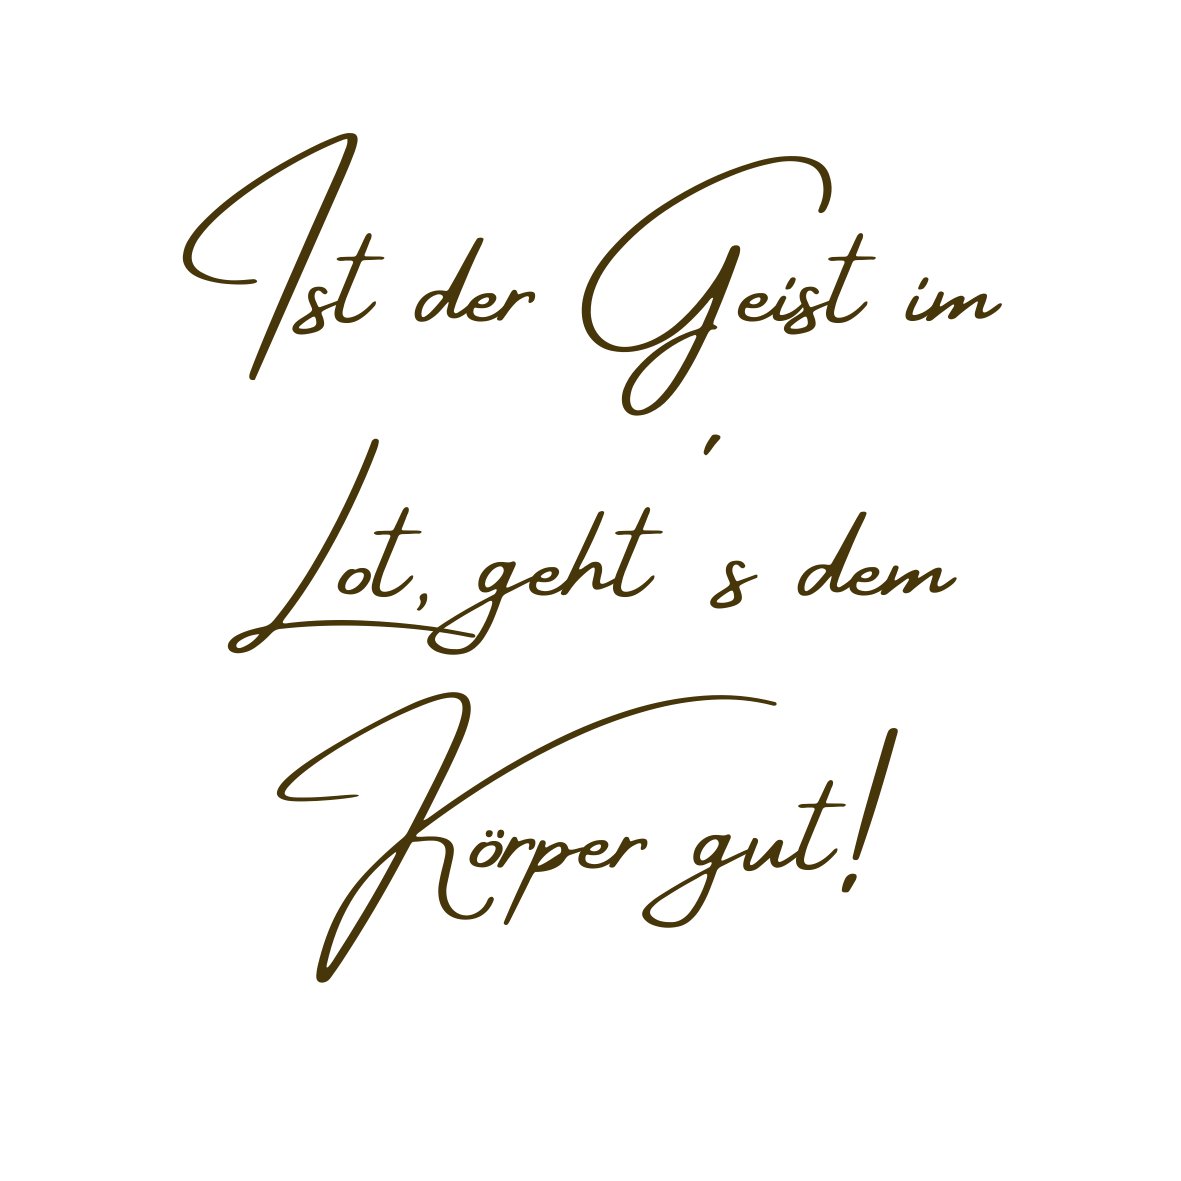 Ist der Geist im
Lot, geht 's dem
Körper gut!